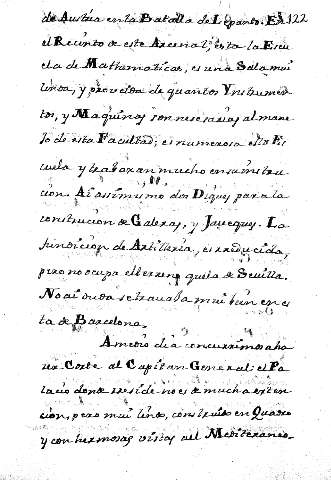 de Austria en la Batalla de Lepanto. En 122
el Recinto de este Arcenal, està la Escu
ela de Mathematicas, es una Sala mui
linda, y proveida de quantos Ynstrumen
tos, y Maquinas son nesesarias al mane
jo de esta Facultad; es numerosa esta Es
cuela y trabaxan mucho en su instru
cion. Ai assimismo dos Diques para la
construcion de Galeras, y Javeques. La
fundicion de Artilleria, es reducida,
pero no ocupa el terreno que la de Sevilla.
No ai duda se travaxa mui bien en es
ta de Barcelona.
A medio dia concurrimos a ha
ver Corte al Capitan General: el Pa
lacio donde reside no es de mucha exten
cion, pero mui lindo, construido en Quadro
y con hermosas vistas al Mediterraneo.